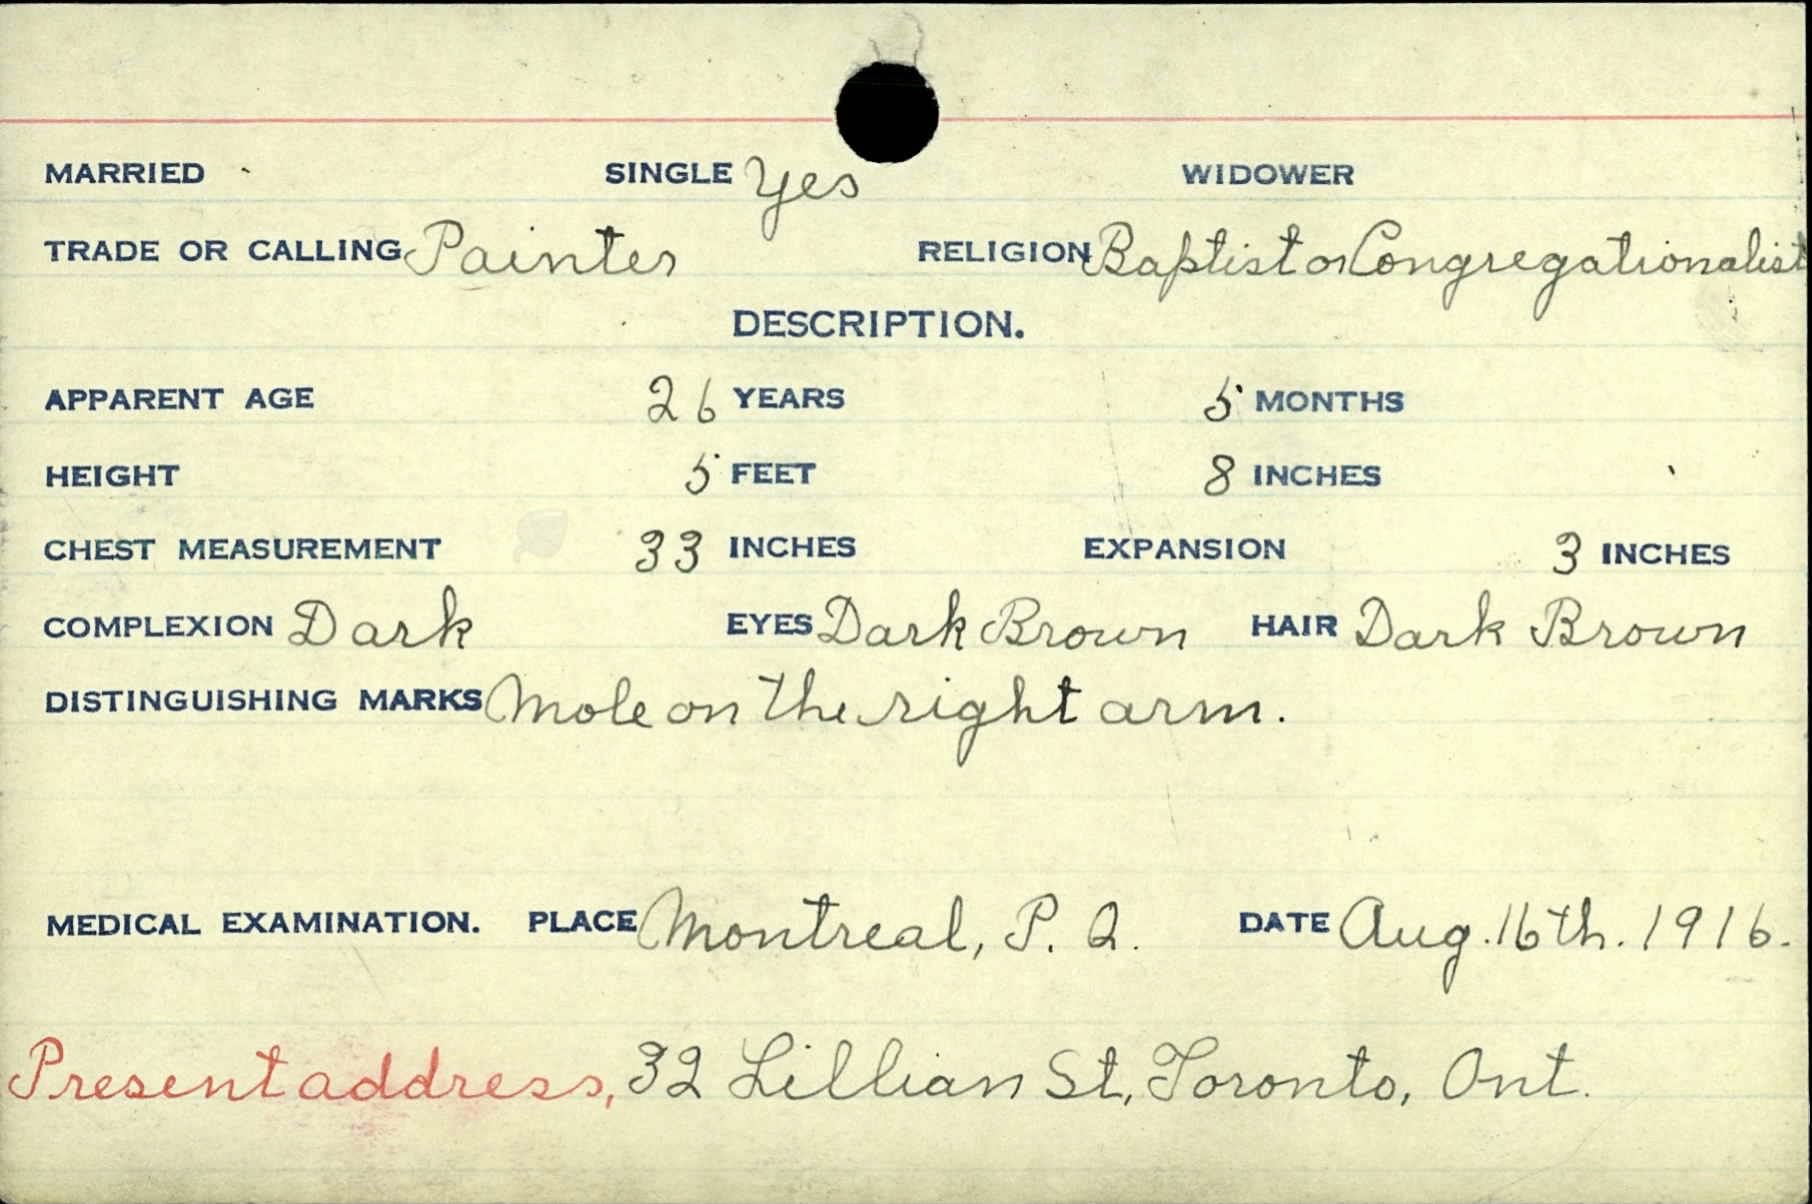 MARRIED SINGLE Yes WIDOWER
TRADE OR CALLING Painter RELIGION Baptist or Congregationalist
DESCRIPTION.
APPARENT AGE 26 YEARS 5 MONTHS
HEIGHT 5 FEET 8 INCHES
CHEST MEASUREMENT 33 INCHES EXPANSION 3 INCHES
COMPLEXION Dark EYES Dark Brown HAIR Dark Brown
DISTINGUISHING MARKS Mole on the right arm.
MEDICAL EXAMINATION. PLACE Montreal, P. Q. DATE Aug. 16th. 1916.
Present address, 32 Lillian St, Toronto, Ont.